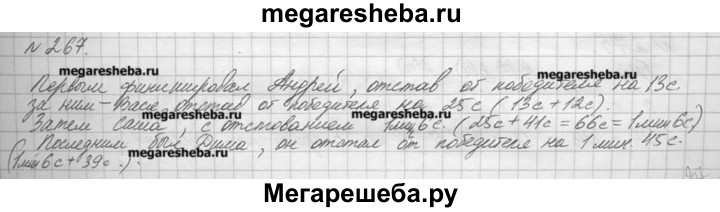 megaresheba.ru
№ 267.
megaresheba.ru megaresheba.ru
Первым финишировал Андрей, отстав от победителя на 13с
за ним - Вася отстав от победителя на 25с (13с+12с).
Затем Саша, с отстованием 1мин6с. (25с+41с=66с=1мин6с)
megaresheba.ru
Последним был Дима, он отстал от победителя на 1мин. 45с.
megaresheba.ru megaresheba.ru
(1мин6с+39с.)
megaresheba.ru
Мегарешеба.ру